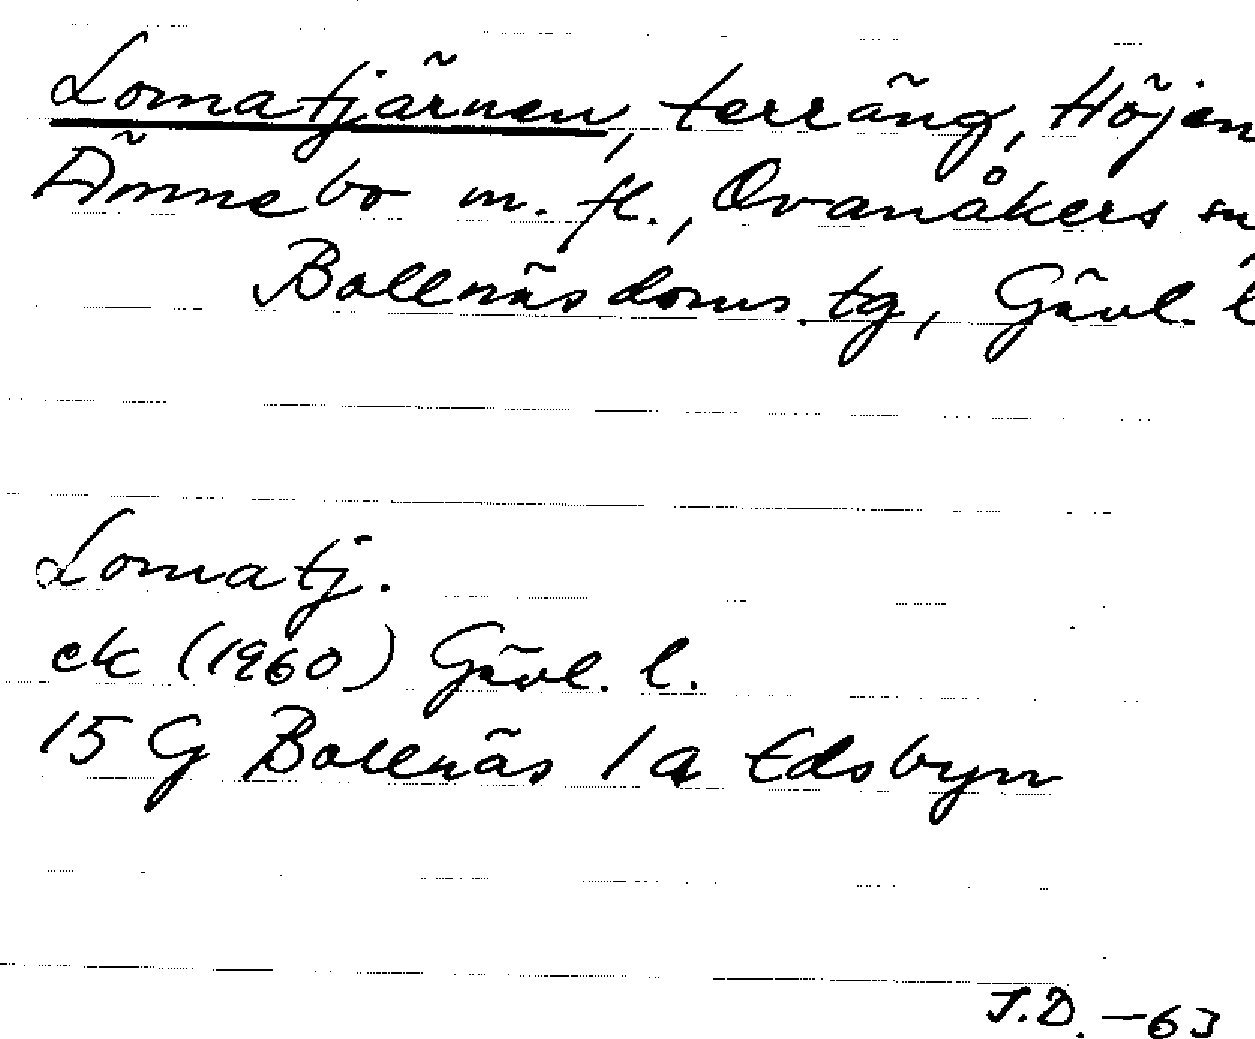 Lomatjärnen, terräng, Höjen
Ämnebo m. fl., Ovanåkers sn
Bollnäs doms. tg, Gävl. l
Lomatj.
ek (1960) Gävl. l.
15 G Bollnäs 1a Edsbyn
J.D. -63